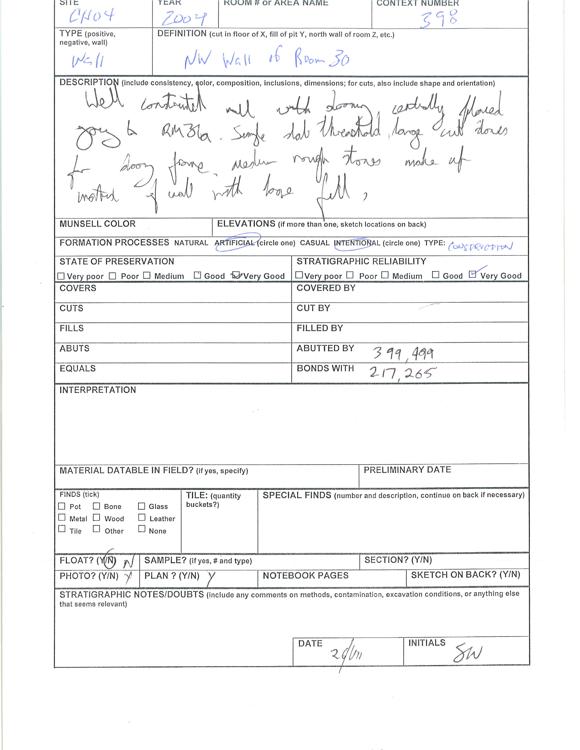 SITE YEAR ROOM # OR AREA NAME CONTEXT NUMBER
CH04 2004 398
TYPE (positive, negative, wall) DEFINITION (cut in floor of X, fill of pit Y, north wall of room Z, etc.)
Wall NW Wall of Room 30
DESCRIPTION (include consistency, color, composition, inclusions, dimensions; for cuts, also include shape and orientation)
Well constructed wall with doorway centrally placed
going to RM31a. Single slab threshold, large cut stones
for door frame, medium rough stones make up
of wall with loose fill,
MUNSELL COLOR ELEVATIONS (if more than one, sketch locations on back)
FORMATION PROCESSES NATURAL ARTIFICIAL (circle one) CASUAL INTENTIONAL (circle one) TYPE: CONSTRUCTION
STATE OF PRESERVATION STRATIGRAPHIC RELIABILITY
Very poor Poor Medium Good Very Good Very poor Poor Medium Good Very Good
COVERS COVERED BY
CUTS CUT BY
FILLS FILLED BY
ABUTS ABUTTED BY 399, 499
EQUALS BONDS WITH 217, 265
INTERPRETATION
MATERIAL DATABLE IN FIELD? (if yes, specify) PRELIMINARY DATE
FINDS (tick) TILE: (quantity buckets?) SPECIAL FINDS (number and description, continue on back if necessary)
Pot Bone Glass
Metal Wood Leather
Tile Other None
FLOAT? (Y/N) N SAMPLE? (if yes, # and type) SECTION? (Y/N)
PHOTO? (Y/N) Y PLAN ? (Y/N) Y NOTEBOOK PAGES SKETCH ON BACK? (Y/N)
STRATIGRAPHIC NOTES/DOUBTS (include any comments on methods, contamination, excavation conditions, or anything else
that seems relevant)
DATE INITIALS
SW